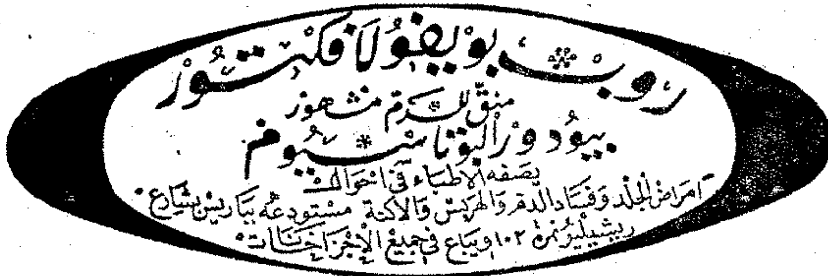 روب بويفو لافكتور
منقّ للدم مشهور
بيودور البوتاسيوم
يصفه الاطباء في احوال
امراض الجلد وفساد الدم والهربس والاكنة مستودعه بباريس بشارع
ريشيليو نمرة ١٠٢ ويباع في جميع الاجزاخانات